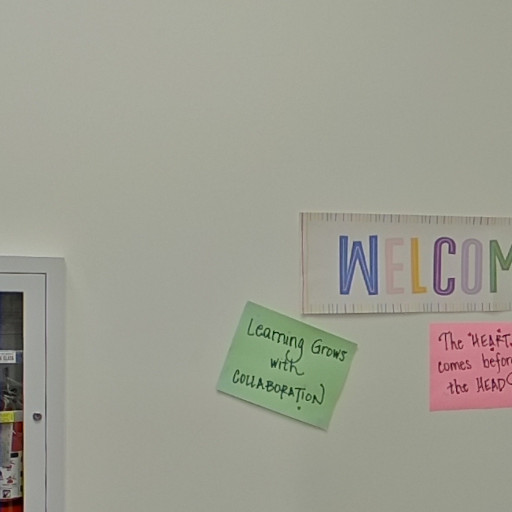 WELCOM
Learning Grows
with
COLLABORATION
The "HEART
comes before
the HEAD